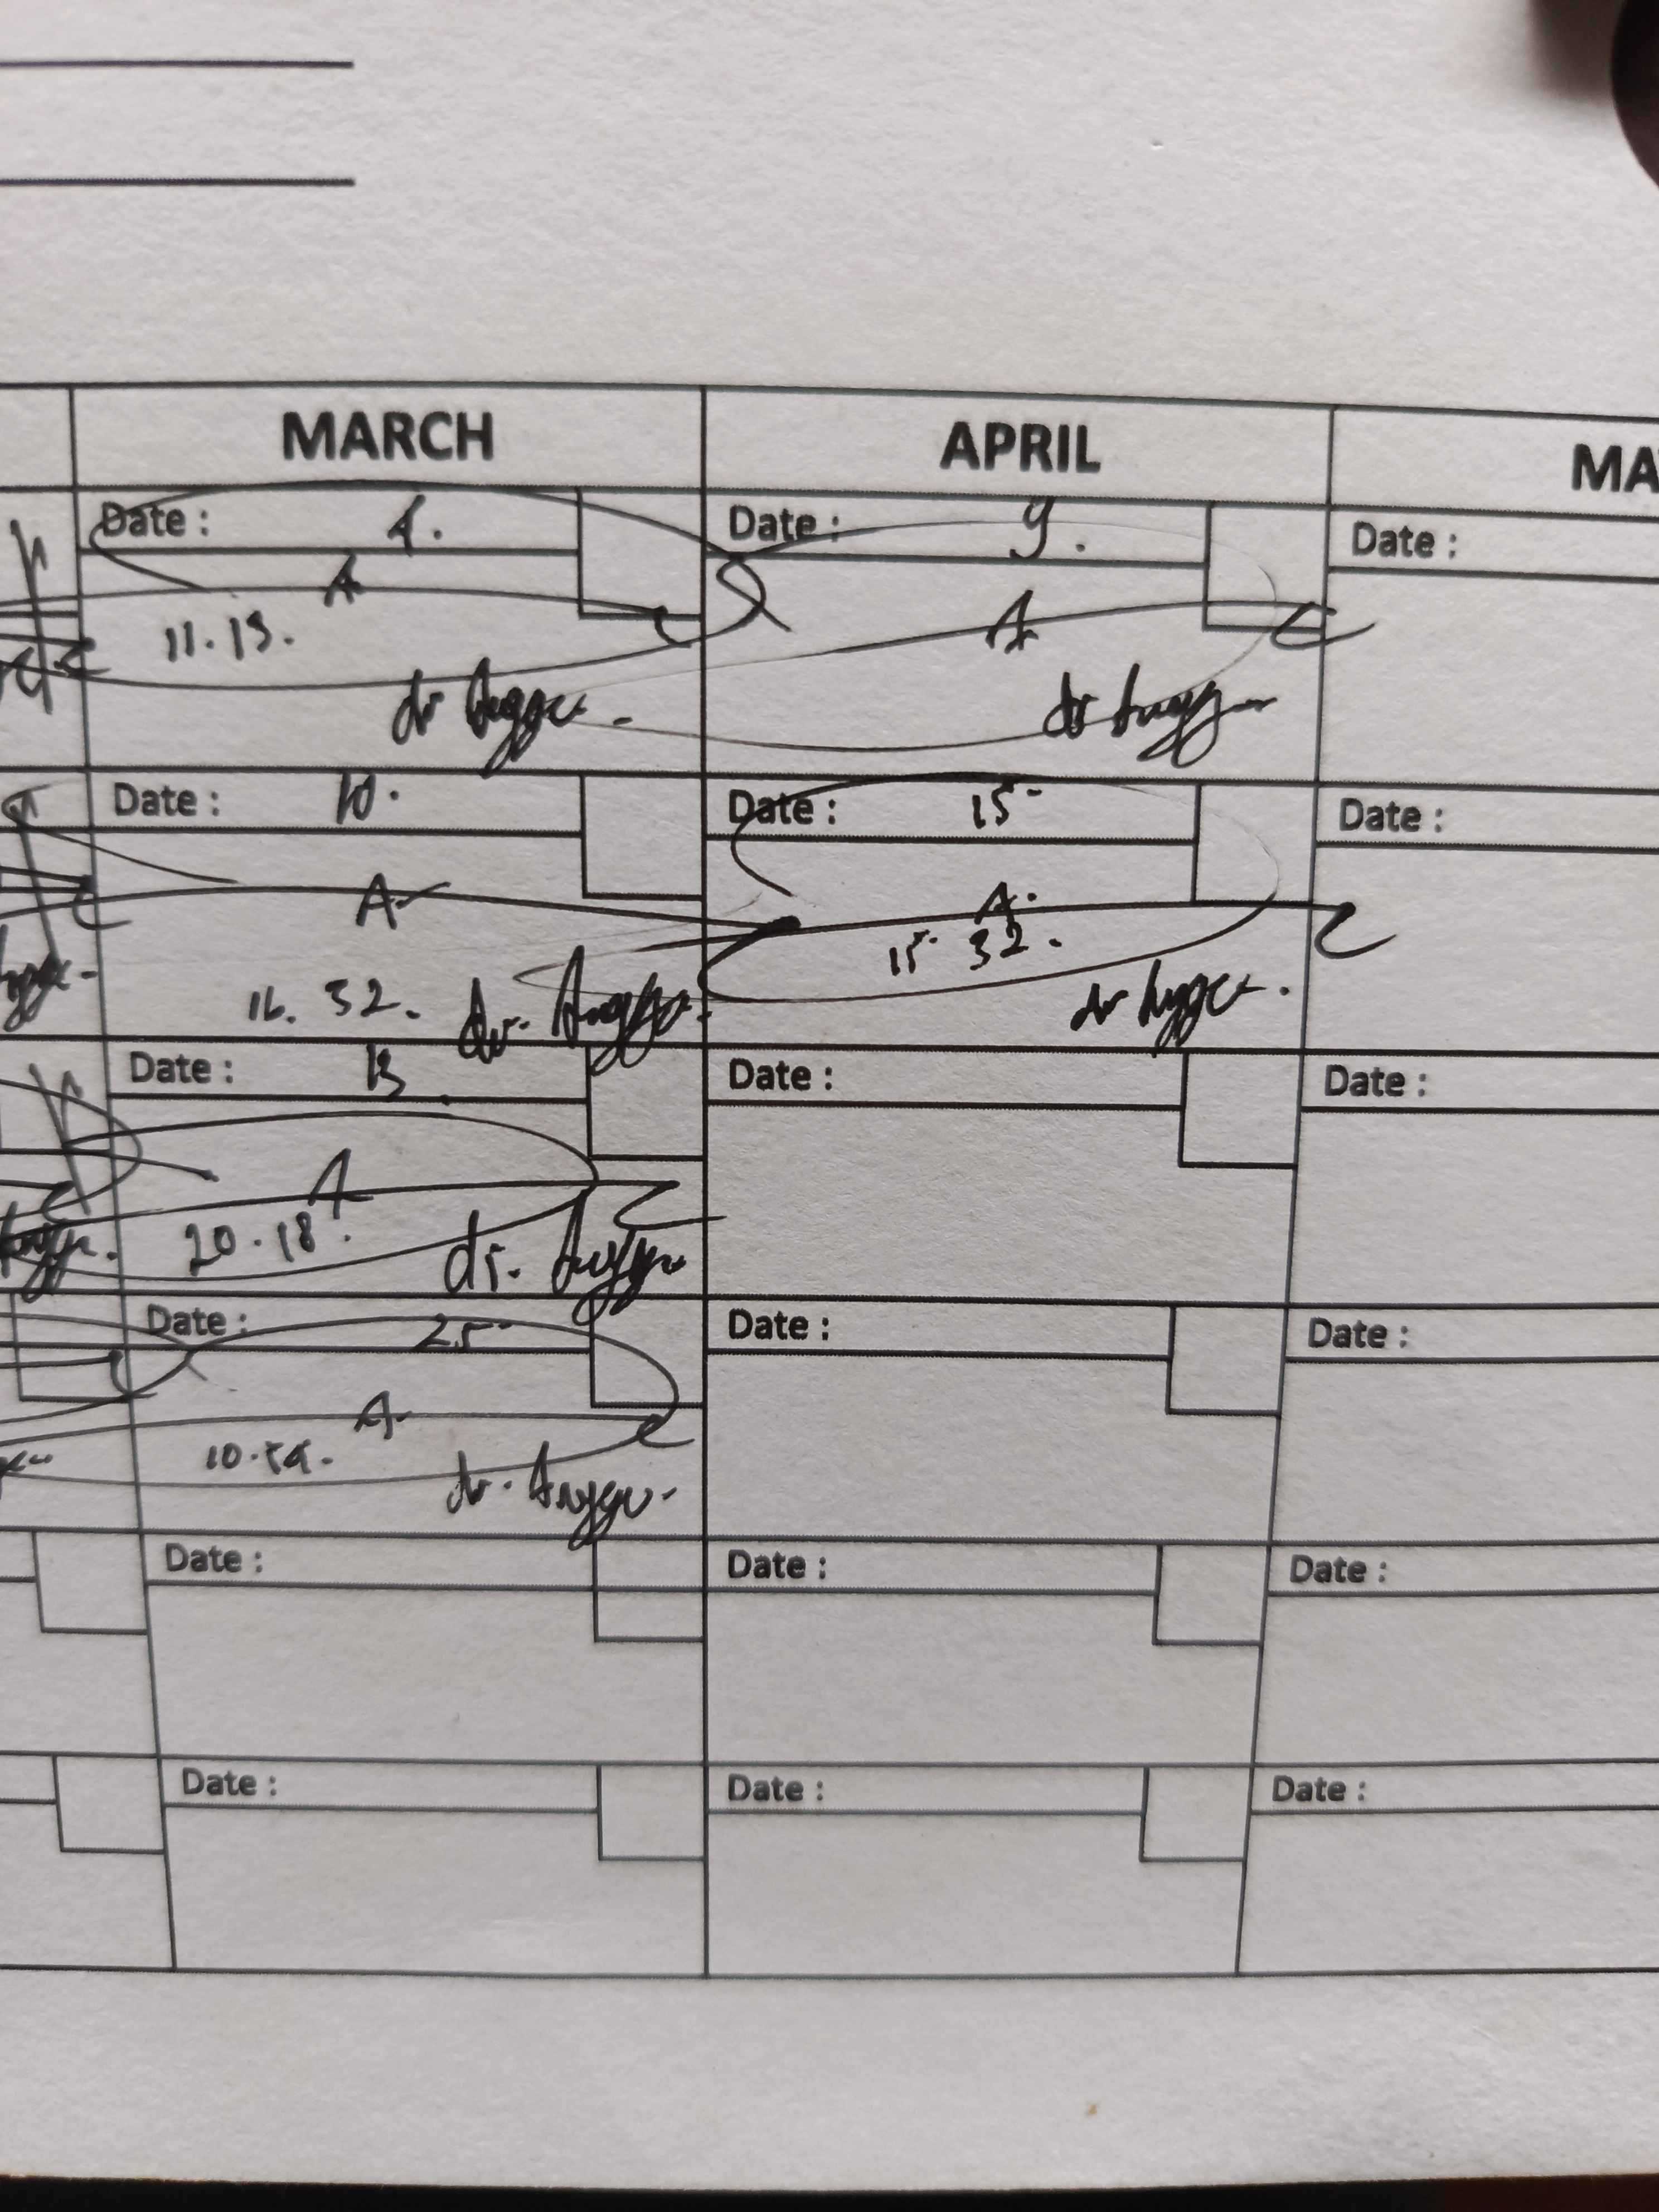 MARCH
APRIL
Date :
A
11.15.
dr Angga.
Date : 9.
A
dr Angga
Date :
Date : 10.
A
16. 32. dr. Angga.
Date : 15
A.
15 32.
dr Angga.
Date :
Date : 13
A
20.18.
dr. Angga
Date :
Date :
Date : 25
A
10.54.
dr. Angga
Date :
Date :
Date :
Date :
Date :
Date :
Date :
Date :